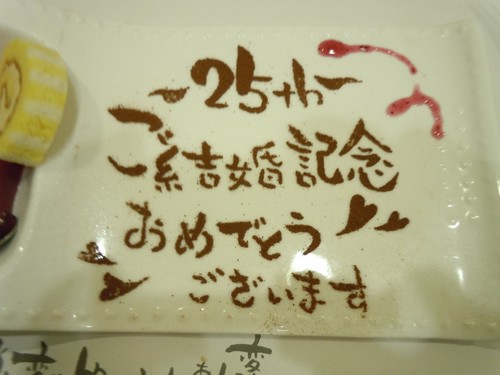 ~25th~
ご結婚記念
おめでとう
ございます
変
変